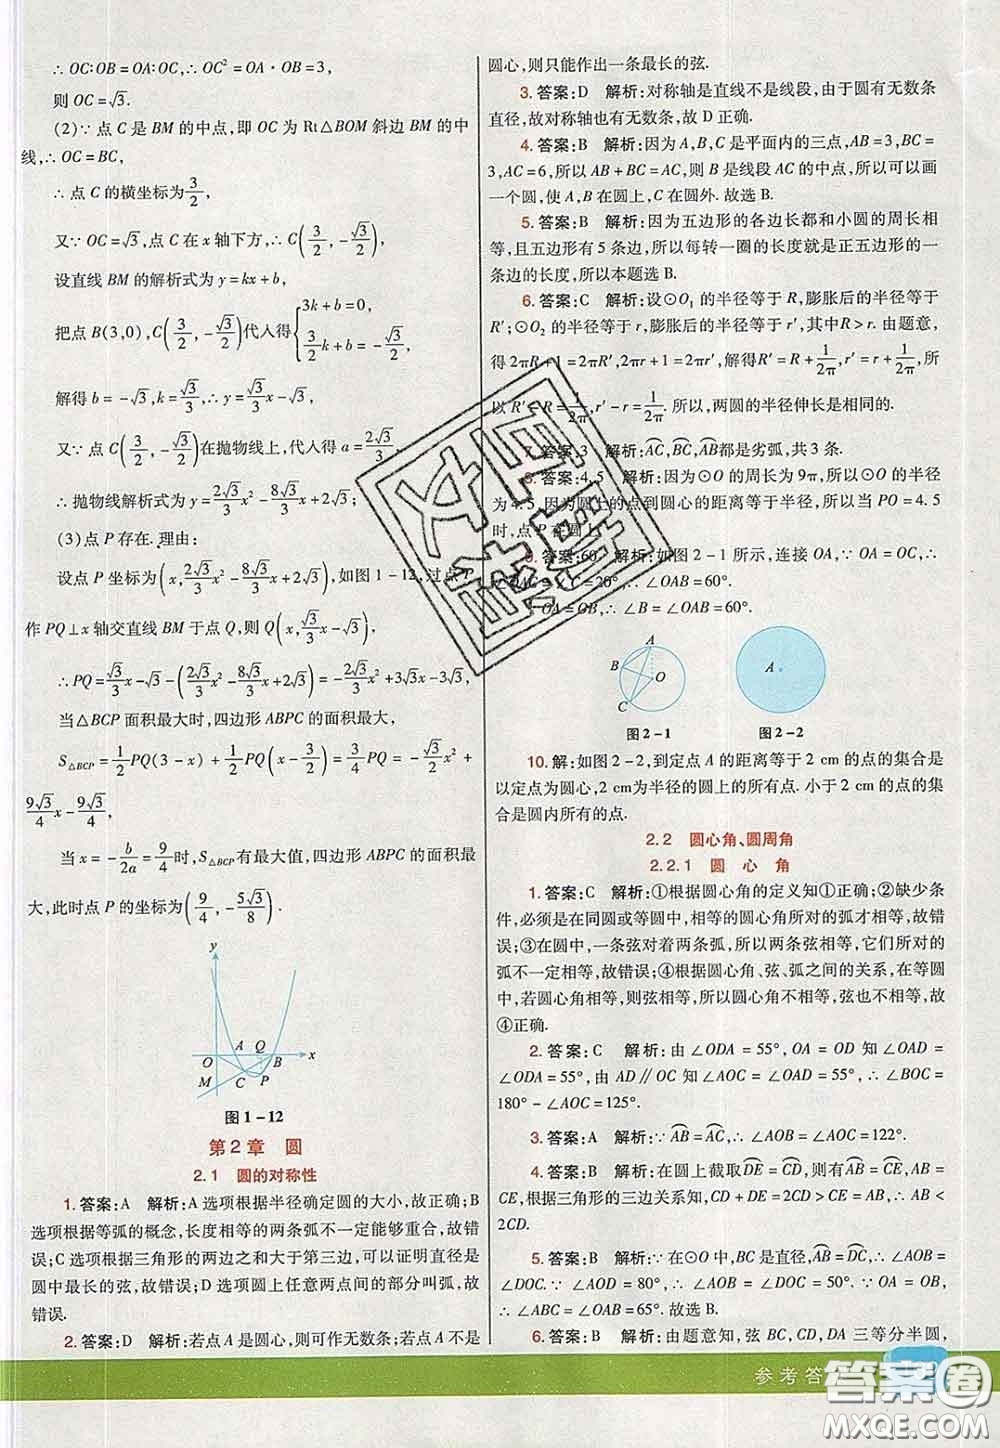 ∴ OC:OB=OA:OC,∴ OC²=OA·OB=3,
则 OC=√3.
(2)∵ 点 C 是 BM 的中点,即 OC 为 Rt△BOM 斜边 BM 的中
线,∴ OC=BC,
∴ 点 C 的横坐标为3/2,
又∵ OC=√3,点 C 在 x 轴下方,∴ C(3/2,-√3/2),
设直线 BM 的解析式为 y=kx+b,
把点 B(3,0),C(3/2,-√3/2)代入得{3k+b=0, 3/2k+b=-√3/2,
解得 b=-√3,k=√3/3,∴ y=√3/3x-√3,
又∵ 点 C(3/2,-√3/2)在抛物线上,代入得 a=2√3/3,
∴ 抛物线解析式为 y=2√3/3x²-8√3/3x+2√3;
(3)点 P 存在. 理由:
设点 P 坐标为(x,2√3/3x²-8√3/3x+2√3),如图 1-12,过点 P
作 PQ⊥x 轴交直线 BM 于点 Q,则 Q(x,√3/3x-√3),
∴PQ=√3/3x-√3-(2√3/3x²-8√3/3x+2√3)=-2√3/3x²+3√3x-3√3,
当△BCP 面积最大时,四边形 ABPC 的面积最大,
S△BCP=1/2PQ(3-x)+1/2PQ(x-3/2)=3/4PQ=-√3/2x²+
9√3/4x-9√3/4,
当 x=-b/2a=9/4时,S△BCP有最大值,四边形 ABPC 的面积最
大,此时点 P 的坐标为(9/4,-5√3/8).
y
O A Q B x
M C P
图 1-12
第2章 圆
2.1 圆的对称性
1. 答案:A 解析:A 选项根据半径确定圆的大小,故正确;B
选项根据等弧的概念,长度相等的两条弧不一定能够重合,故错
误;C 选项根据三角形的两边之和大于第三边,可以证明直径是
圆中最长的弦,故错误;D 选项圆上任意两点间的部分叫弧,故
错误.
2. 答案:D 解析:若点 A 是圆心,则可作无数条;若点 A 不是
圆心,则只能作出一条最长的弦.
3. 答案:D 解析:对称轴是直线不是线段,由于圆有无数条
直径,故对称轴也有无数条,故 D 正确.
4. 答案:B 解析:因为 A,B,C 是平面内的三点,AB=3,BC=
3,AC=6,所以 AB+BC=AC,则 B 是线段 AC 的中点,所以可以
画一个圆,使 A,B 在圆上,C 在圆外. 故选 B.
5. 答案:B 解析:因为五边形的各边长都和小圆的周长相
等,且五边形有 5 条边,所以每转一圈的长度就是正五边形的一
条边的长度,所以本题选 B.
6. 答案:C 解析:设⊙O₁ 的半径等于 R,膨胀后的半径等于
R′;⊙O₂ 的半径等于 r,膨胀后的半径等于 r′,其中R>r. 由题意,
得 2πR+1=2πR′,2πr+1=2πr′,解得R′=R+1/2π,r′=r+1/2π,所
以 R′-R=1/2π,r′-r=1/2π. 所以,两圆的半径伸长是相同的.
7. 答案:3 解析:AC,BC,AB都是劣弧,共 3 条.
8. 答案:4.5 解析:因为⊙O 的周长为 9π,所以⊙O 的半径
为 4.5,因为圆上的点到圆心的距离等于半径,所以当 PO=4.5
时,点 P 在圆上.
9. 答案:60° 解析:如图 2-1 所示,连接 OA,∵ OA=OC,∴
∠OAC=∠C=20°,∴ ∠OAB=60°.
∵ OA=OB,∴ ∠OBA=∠OAB=60°.
A B C O
图 2-1
A
图 2-2
10. 解:如图 2-2,到定点 A 的距离等于 2 cm 的点的集合是
以定点为圆心,2 cm为半径的圆上的所有点. 小于 2 cm 的点的集
合是圆内所有的点.
2.2 圆心角、圆周角
2.2.1 圆 心 角
1. 答案:C 解析:①根据圆心角的定义知①正确;②缺少条
件,必须是在同圆或等圆中,相等的圆心角所对的弧才相等,故错
误;③在圆中,一条弦对着两条弧,所以两条弦相等,它们所对的
弧不一定相等,故错误;④根据圆心角、弦、弧之间的关系,在等圆
中,若圆心角相等,则弦相等,所以圆心角不相等,弦也不相等,故
④正确.
2. 答案:C 解析:由∠ODA=55°,OA=OD 知∠OAD=
∠ODA=55°,由 AD∥OC 知∠COA=∠OAD=55°,∴ ∠BOC=
180°-∠AOC=125°.
3. 答案:A 解析:∵ AB=AC,∴ ∠AOB=∠AOC=122°.
4. 答案:C 解析:在圆上截取DE=CD,则有AB=CE,∴ AB=
CE,根据三角形的三边关系知,CD+DE=2CD>CE=AB,∴ AB<
2CD.
5. 答案:B 解析:∵ 在⊙O中,BC 是直径,AB=DC,∴ ∠AOB=
∠DOC.∵ ∠AOD=80°,∴ ∠AOB=∠DOC=50°.∵ OA=OB,
∴ ∠ABC=∠OAB=65°. 故选 B.
6. 答案:B 解析:由题意知,弦 BC,CD,DA 三等分半圆,
参考答
答案圈
MXQE.COM